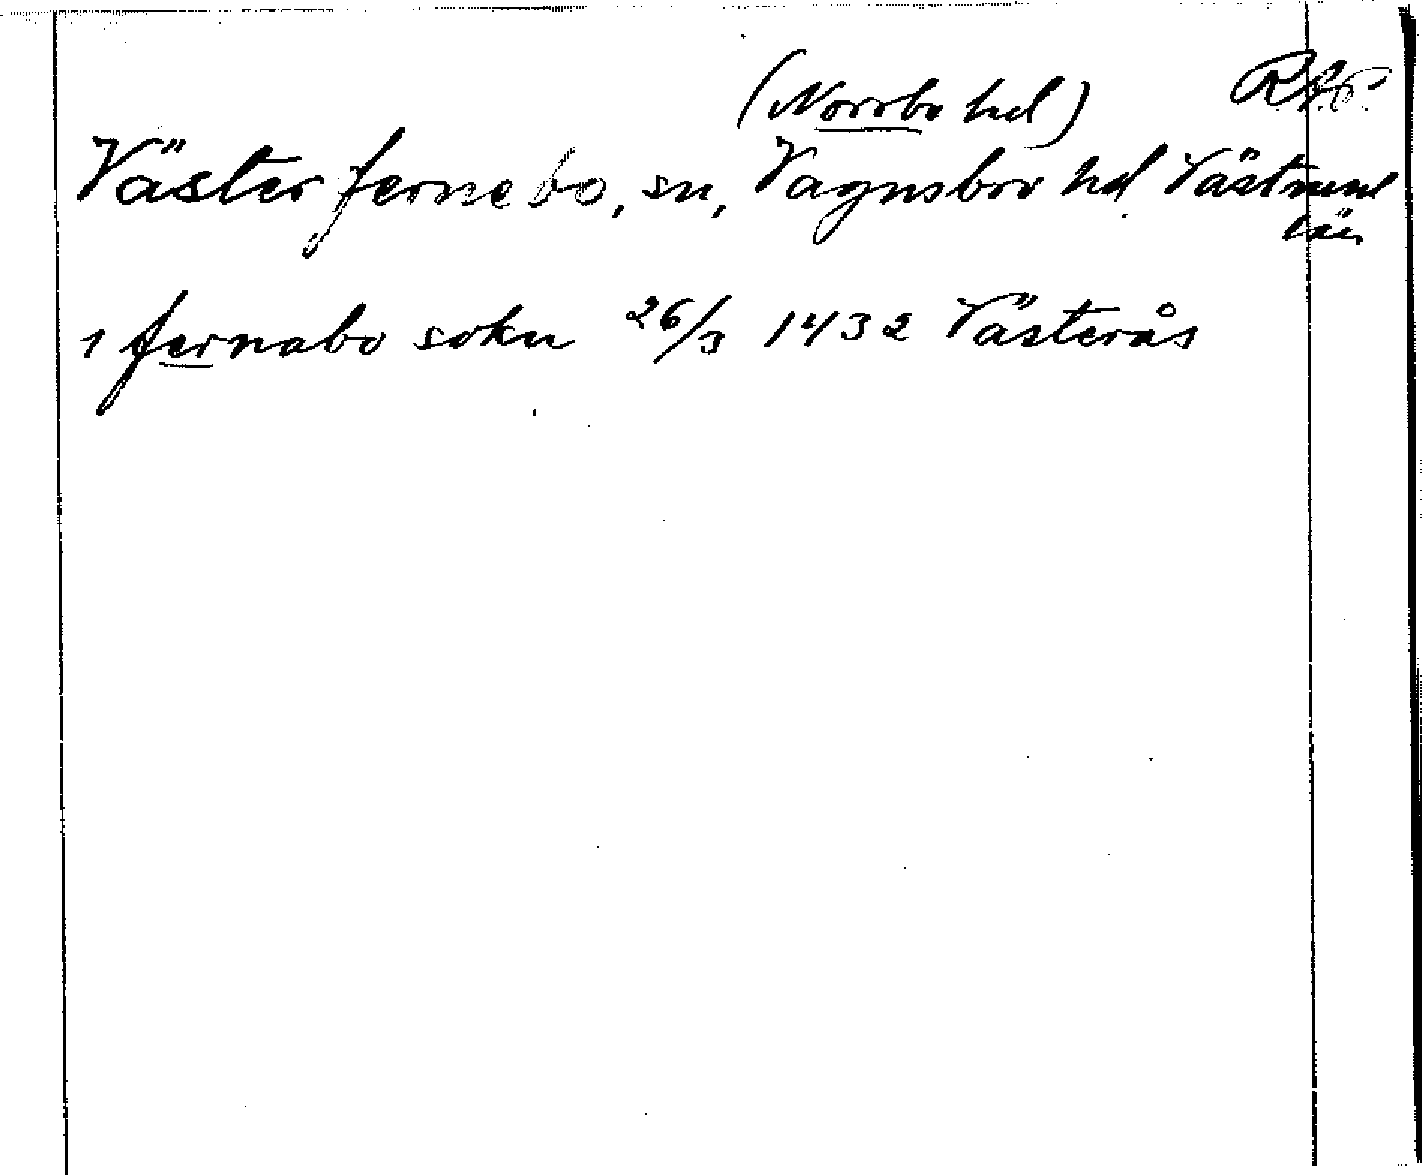 (Norrbo hd) RAP.
Västerfernebo, sn, Vagnsbro hd Västmanl
län
1 fernabo sokn 26/3 1432 Västerås